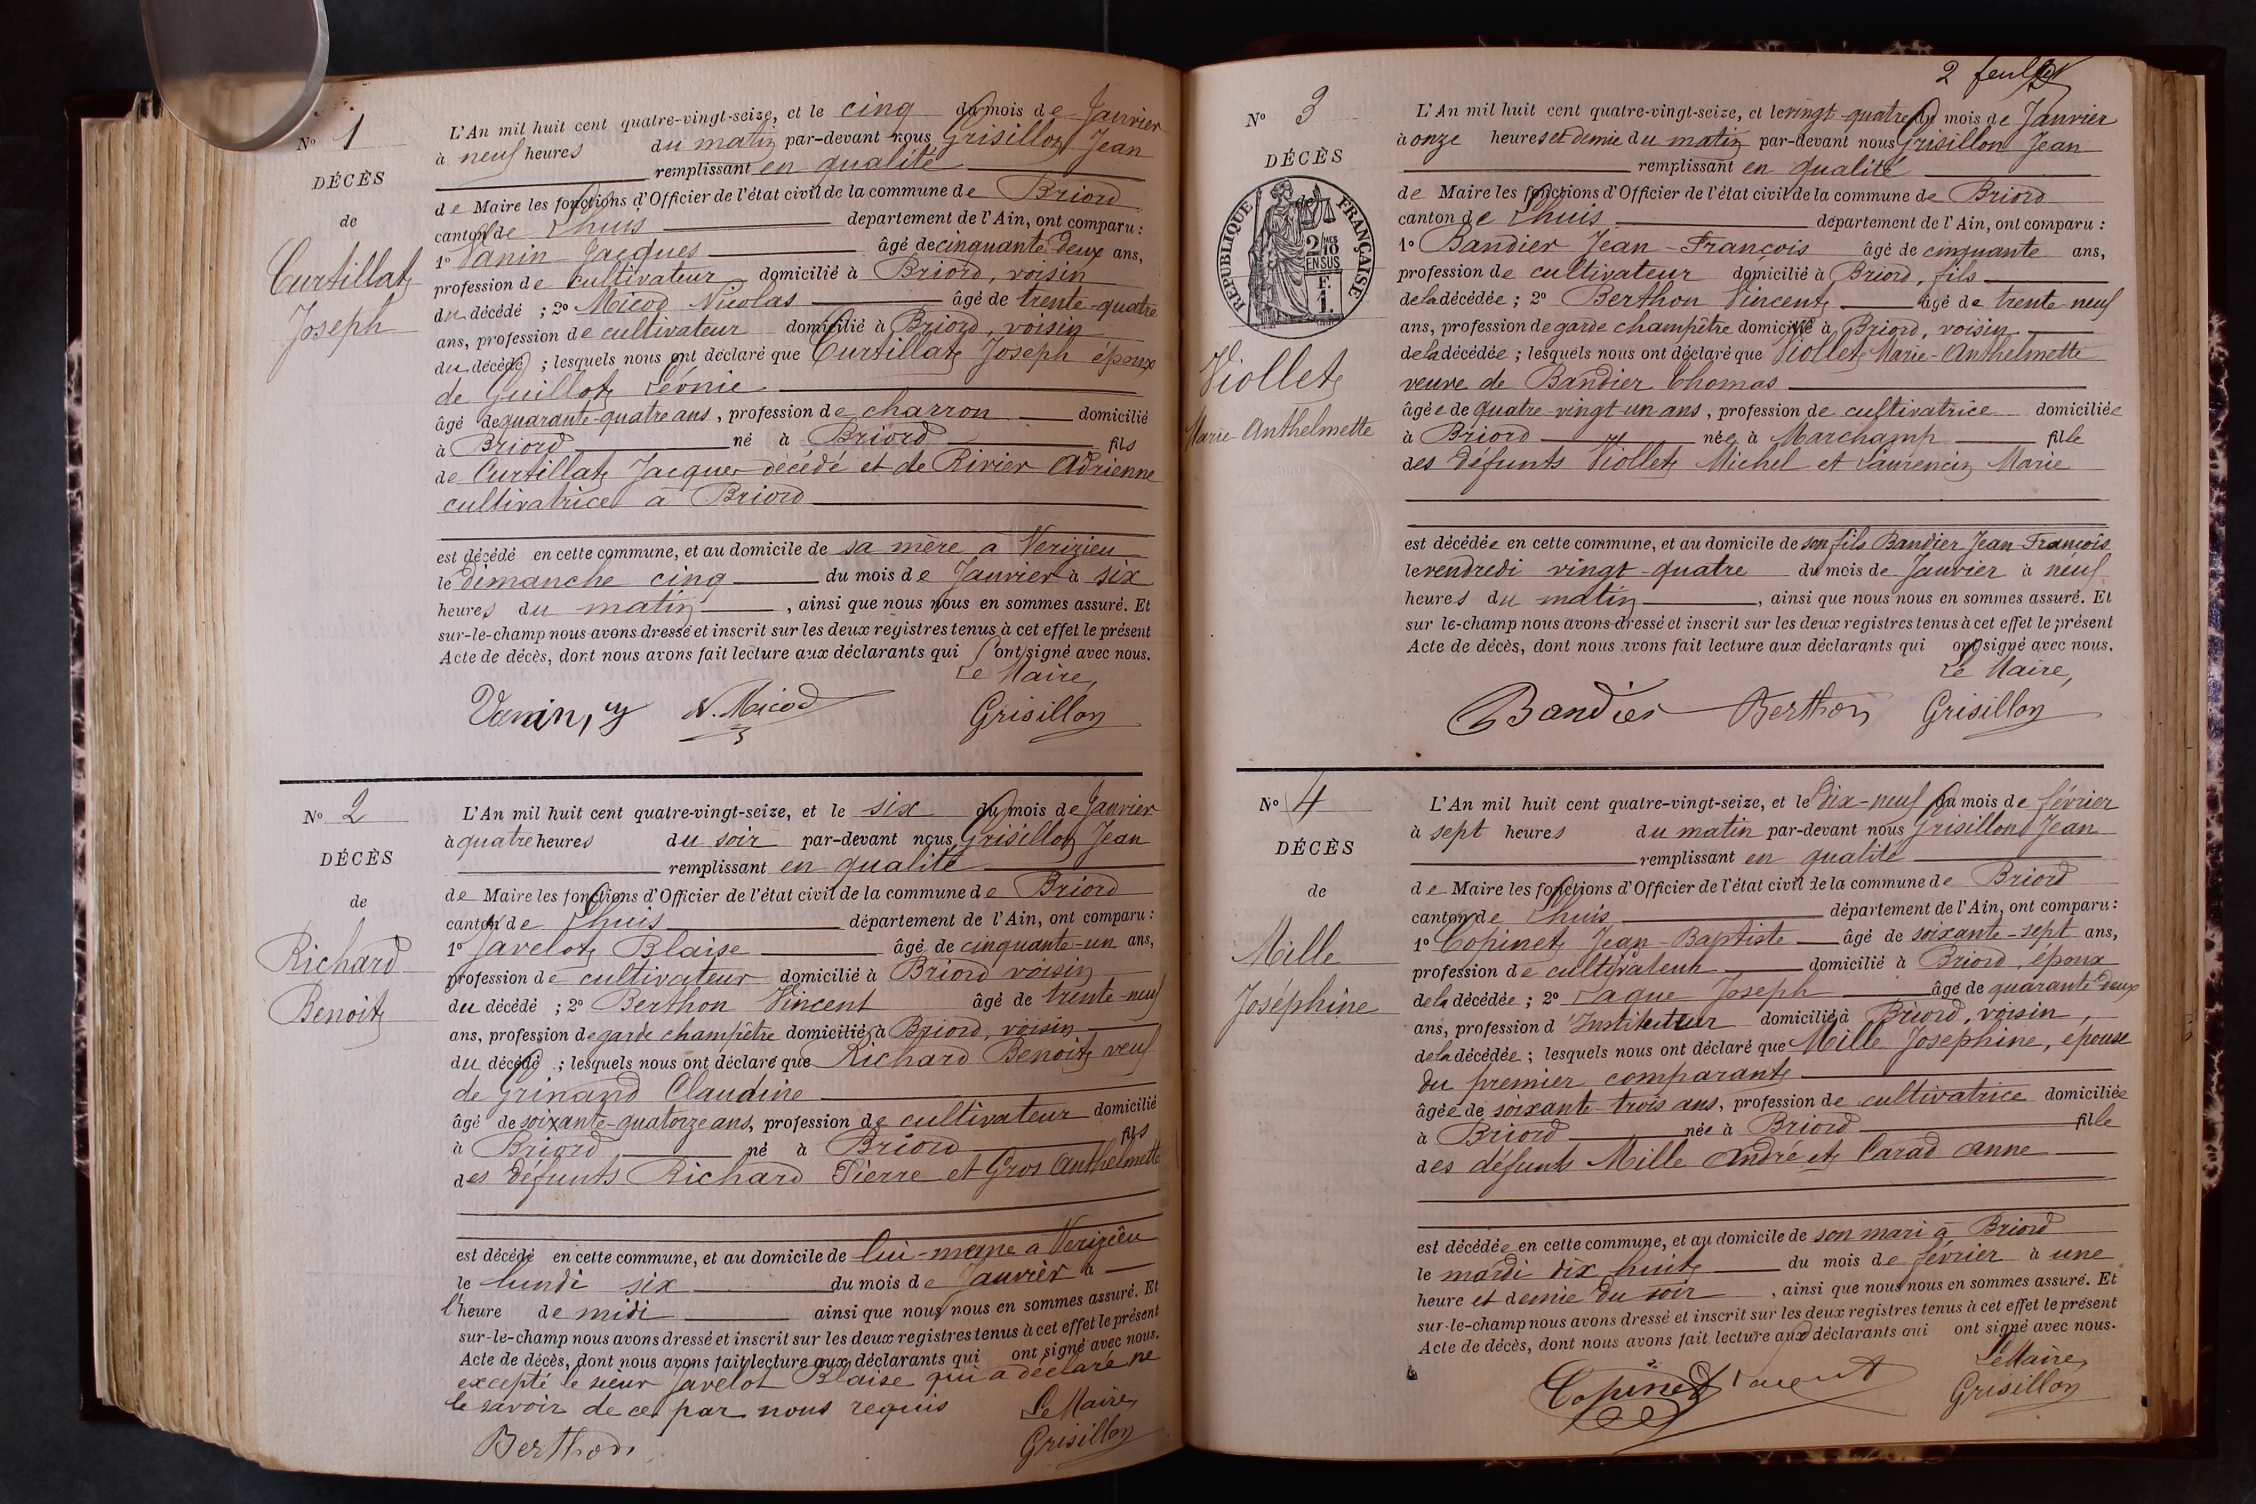 Nº 1
DÉCÈS
de
Curtillat
Joseph
L'An mil huit cent quatre-vingt-seize, et le cinq du mois de Janvier
à neuf heures du matin par-devant nous Grisillon Jean
remplissant en qualité
de Maire les fonctions d'Officier de l'état civil de la commune de Briord
canton de Lhuis département de l'Ain, ont comparu :
1º Vanin Jacques âgé de cinquante deux ans,
profession de cultivateur domicilié à Briord, voisin
du décédé ; 2º Micod Nicolas âgé de trente-quatre
ans, profession de cultivateur domicilié à Briord, voisin
du décédé ; lesquels nous ont déclaré que Curtillat Joseph époux
de Guillot Léonie
âgé de quarante-quatre ans, profession de charron domicilié
à Briord né à Briord fils
de Curtillat Jacques décédé et de Rivier Adrienne
cultivatrice à Briord
est décédé en cette commune, et au domicile de sa mère à Verizieu
le dimanche cinq du mois de Janvier à six
heures du matin, ainsi que nous nous en sommes assuré. Et
sur-le-champ nous avons dressé et inscrit sur les deux registres tenus à cet effet le présent
Acte de décès, dont nous avons fait lecture aux déclarants qui ont signé avec nous.
Le Maire,
Vanin, N. Micod Grisillon
Nº 2
DÉCÈS
de
Richard
Benoit
L'An mil huit cent quatre-vingt-seize, et le six du mois de Janvier
à quatre heures du soir par-devant nous Grisillon Jean
remplissant en qualité
de Maire les fonctions d'Officier de l'état civil de la commune de Briord
canton de Lhuis département de l'Ain, ont comparu :
1º Javelot Blaise âgé de cinquante-un ans,
profession de cultivateur domicilié à Briord voisin
du décédé ; 2º Berthon Vincent âgé de trente-neuf
ans, profession de garde champêtre domicilié à Briord, voisin
du décédé ; lesquels nous ont déclaré que Richard Benoit veuf
de Grinand Claudine
âgé de soixante-quatorze ans, profession de cultivateur domicilié
à Briord né à Briord fils
des défunts Richard Pierre et Gros Anthelmette
est décédé en cette commune, et au domicile de lui-même à Verizieu
le lundi six du mois de Janvier à
l'heure de midi ainsi que nous nous en sommes assuré. Et
sur-le-champ nous avons dressé et inscrit sur les deux registres tenus à cet effet le présent
Acte de décès, dont nous avons fait lecture aux déclarants qui ont signé avec nous.
excepté le sieur Javelot Blaise qui a déclaré ne
le savoir de ce par nous requis
Le Maire,
Berthon Grisillon
2 feuillet
Nº 3
DÉCÈS
RÉPUBLIQUE FRANÇAISE
2/10 MES
EN SUS
F.
1.
Viollet
Marie-Anthelmette
L'An mil huit cent quatre-vingt-seize, et le vingt-quatre du mois de Janvier
à onze heures et demie du matin par-devant nous Grisillon Jean
remplissant en qualité
de Maire les fonctions d'Officier de l'état civil de la commune de Briord
canton de Lhuis département de l'Ain, ont comparu :
1º Bandier Jean-François âgé de cinquante ans,
profession de cultivateur domicilié à Briord, fils
de la décédée ; 2º Berthon Vincent âgé de trente neuf
ans, profession de garde champêtre domicilié à Briord, voisin
de la décédée ; lesquels nous ont déclaré que Viollet Marie-Anthelmette
veuve de Bandier Thomas
âgée de quatre-vingt-un ans, profession de cultivatrice domiciliée
à Briord née à Marchamp fille
des défunts Viollet Michel et Laurencin Marie
est décédée en cette commune, et au domicile de son fils Bandier Jean-François
le vendredi vingt-quatre du mois de Janvier à neuf
heures du matin, ainsi que nous nous en sommes assuré. Et
sur le-champ nous avons dressé et inscrit sur les deux registres tenus à cet effet le présent
Acte de décès, dont nous avons fait lecture aux déclarants qui ont signé avec nous.
Le Maire,
Bandier Berthon Grisillon
Nº 4
DÉCÈS
de
Mille
Joséphine
L'An mil huit cent quatre-vingt-seize, et le dix-neuf du mois de février
à sept heures du matin par-devant nous Grisillon Jean
remplissant en qualité
de Maire les fonctions d'Officier de l'état civil de la commune de Briord
canton de Lhuis département de l'Ain, ont comparu :
1º Copinet Jean-Baptiste âgé de soixante-sept ans,
profession de cultivateur domicilié à Briord, époux
de la décédée ; 2º Jague Joseph âgé de quarante deux
ans, profession d'Instituteur domicilié à Briord, voisin,
de la décédée ; lesquels nous ont déclaré que Mille Josephine, épouse
du premier comparant
âgée de soixante-trois ans, profession de cultivatrice domiciliée
à Briord née à Briord fille
des défunts Mille André et Carad Anne
est décédée en cette commune, et au domicile de son mari à Briord
le mardi dix huit du mois de février à une
heure et demie du soir, ainsi que nous nous en sommes assuré. Et
sur-le-champ nous avons dressé et inscrit sur les deux registres tenus à cet effet le présent
Acte de décès, dont nous avons fait lecture aux déclarants qui ont signé avec nous.
Le Maire,
Copinet Grisillon